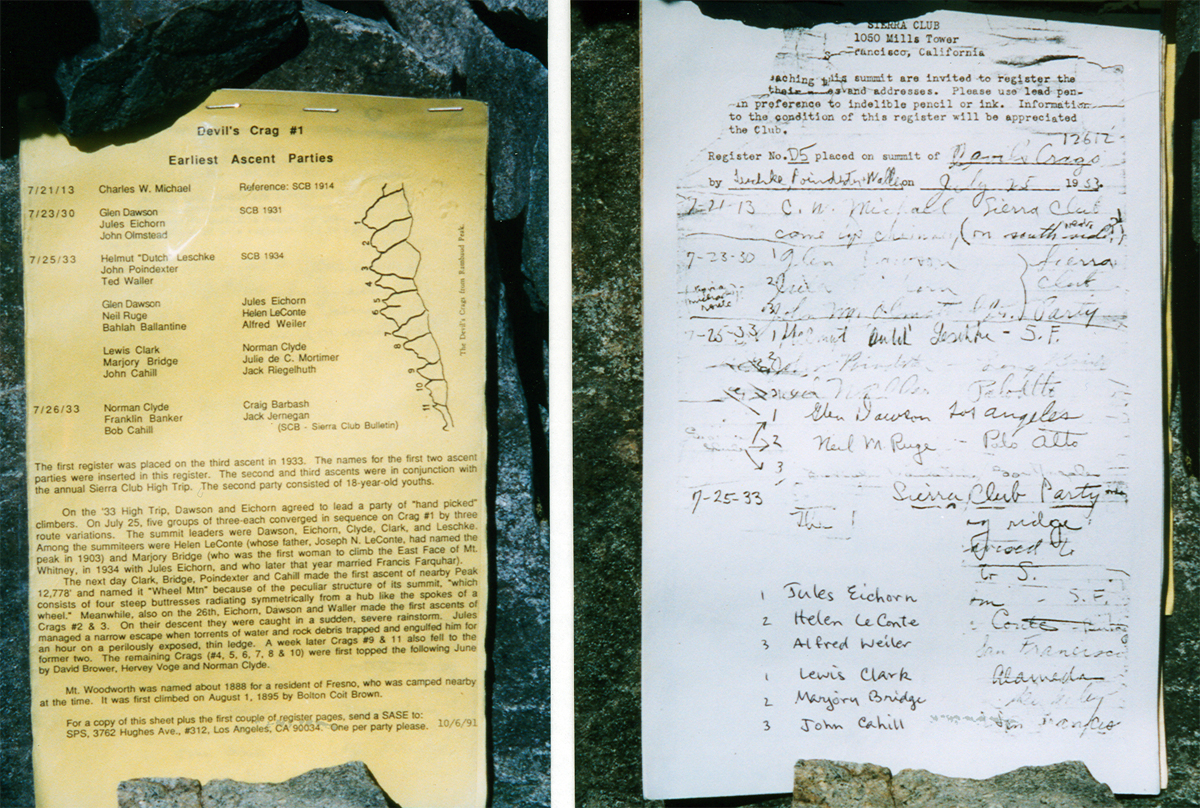 Devil's Crag #1
Earliest Ascent Parties
7/21/13 Charles W. Michael Reference: SCB 1914
7/23/30 Glen Dawson SCB 1931
Jules Eichorn
John Olmstead
7/25/33 Helmut "Dutch" Leschke SCB 1934
John Poindexter
Ted Waller
Glen Dawson Jules Eichorn
Neil Ruge Helen LeConte
Bahlah Ballantine Alfred Weiler
Lewis Clark Norman Clyde
Marjory Bridge Julie de C. Mortimer
John Cahill Jack Riegelhuth
7/26/33 Norman Clyde Craig Barbash
Franklin Banker Jack Jernegan
Bob Cahill (SCB - Sierra Club Bulletin)
1
2
3
4
5
6
7
8
9
10
11
The Devil's Crags from Rambaud Peak.
The first register was placed on the third ascent in 1933. The names for the first two ascent
parties were inserted in this register. The second and third ascents were in conjunction with
the annual Sierra Club High Trip. The second party consisted of 18-year-old youths.
On the '33 High Trip, Dawson and Eichorn agreed to lead a party of "hand picked"
climbers. On July 25, five groups of three-each converged in sequence on Crag #1 by three
route variations. The summit leaders were Dawson, Eichorn, Clyde, Clark, and Leschke.
Among the summiteers were Helen LeConte (whose father, Joseph N. LeConte, had named the
peak in 1903) and Marjory Bridge (who was the first woman to climb the East Face of Mt.
Whitney, in 1934 with Jules Eichorn, and who later that year married Francis Farquhar).
The next day Clark, Bridge, Poindexter and Cahill made the first ascent of nearby Peak
12,778' and named it "Wheel Mtn" because of the peculiar structure of its summit, "which
consists of four steep buttresses radiating symmetrically from a hub like the spokes of a
wheel." Meanwhile, also on the 26th, Eichorn, Dawson and Waller made the first ascents of
Crags #2 & 3. On their descent they were caught in a sudden, severe rainstorm. Jules
managed a narrow escape when torrents of water and rock debris trapped and engulfed him for
an hour on a perilously exposed, thin ledge. A week later Crags #9 & 11 also fell to the
former two. The remaining Crags (#4, 5, 6, 7, 8 & 10) were first topped the following June
by David Brower, Hervey Voge and Norman Clyde.
Mt. Woodworth was named about 1888 for a resident of Fresno, who was camped nearby
at the time. It was first climbed on August 1, 1895 by Bolton Coit Brown.
For a copy of this sheet plus the first couple of register pages, send a SASE to:
SPS, 3762 Hughes Ave., #312, Los Angeles, CA 90034. One per party please. 10/6/91
SIERRA CLUB
1050 Mills Tower
Francisco, California
aching this summit are invited to register the
their and addresses. Please use lead pen-
in preference to indelible pencil or ink. Information
to the condition of this register will be appreciated
the Club.
12612
Register No. D5 placed on summit of Devil's Crags
by Leschke Poindexter Waller on July 25 1933.
7-21-13 C. W. Michael Sierra Club
come up chimney (on south side)
7-23-30 1 Glen Dawson Sierra
2 Club
3 Party
7-25-33 1 Helmut Leschke - S.F.
2
Palo Alto
1 Glen Dawson Los Angeles
2 Neil M Ruge - Palo Alto
3
7-25-33 Sierra Club Party
The ridge
to S.
1 Jules Eichorn S.F.
2 Helen LeConte
3 Alfred Weiler San Francisco
1 Lewis Clark Alameda
2 Marjory Bridge
3 John Cahill San Francisco